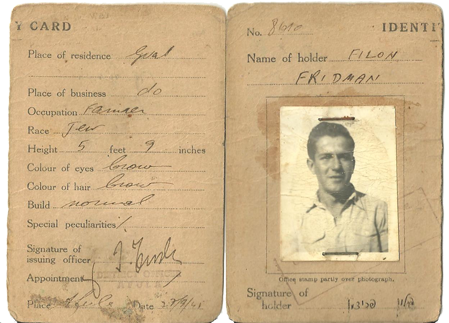 Y CARD
Place of residence
Place of business do
Occupation Farmer
Race Jew
Height 5 feet 9 inches
Colour of eyes brow
Colour of hair brow
Build normal
Special peculiarities
Signature of
issuing officer
Appointment
Place Date
No. IDENTI
Name of holder FILON
FRIDMAN
Office stamp partly over photograph.
Signature of
holder פילון פרידמן